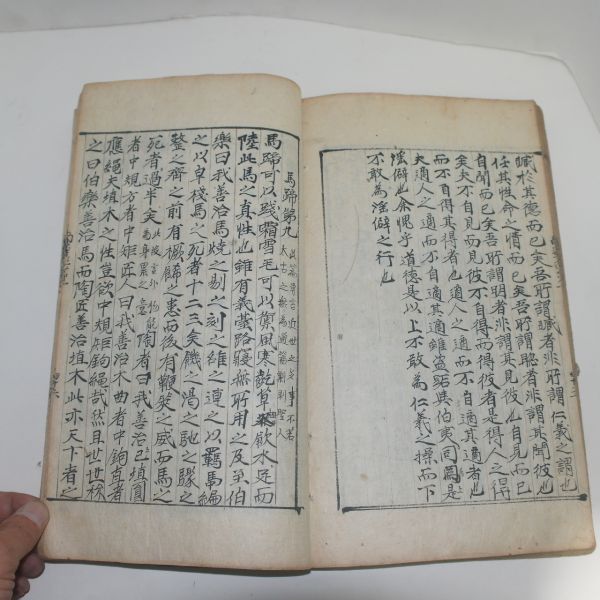 臧於其德而已矣吾所謂臧者非所謂仁義之謂也
任其性命之情而已矣吾所謂聰者非謂其聞彼也
自聞而已矣吾所謂明者非謂其見彼也自見而已
矣夫不自見而見彼不自得而得彼者是得人之得
而不自得其得者也適人之適而不自適其適者也
夫適人之適而不自適其適雖盜跖與伯夷同爲是
淫僻也余愧乎道德是以上不敢為仁義之操而下
不敢為淫僻之行也
馬蹄第九 此篇言近世之多事不若太古之無為通篇剽剝聖人
馬蹄可以踐霜雪毛可以禦風寒齕草飲水足而
陸此馬之真性也雖有義臺路寢無所用之及至伯
樂曰我善治馬燒之剔之刻之雒之連之以羈馬編
之以皁棧馬之死者十二三矣饑之渴之馳之驟之
整之齊之前有橛飾之患而後有鞭筴之威而馬之
死者過半矣 陶者曰我善治埴圓
者中規方者中矩匠人曰我善治木曲者中鉤直者
應繩夫埴木之性豈欲中規矩鉤繩哉然且世世稱
之曰伯樂善治馬而陶匠善治埴木此亦天下者之